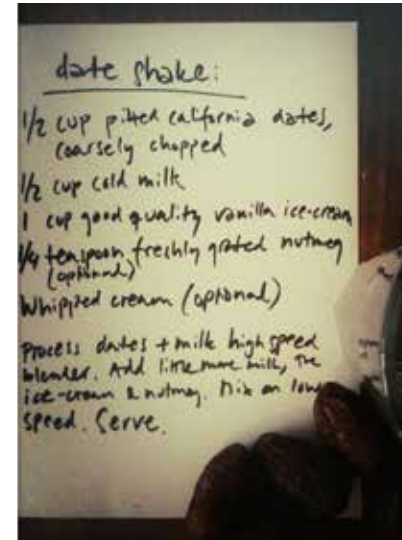 date shake:
1/2 cup pitted california dates,
coarsely chopped
1/2 cup cold milk
1 cup good quality vanilla ice-cream
1/4 teaspoon freshly grated nutmeg
(optional)
Whipped cream (optional)
Process dates + milk high speed
blender. Add little more milk, the
ice-cream & nutmeg. Mix on low
speed. Serve.